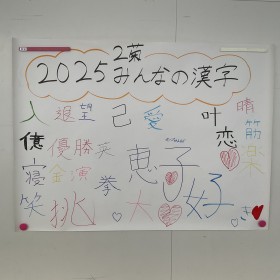 2菊
2025みんなの漢字
人 退 望 己 愛 叶 晴
億 優勝 英 恵 子 恋 筋
寝 金 演 拳 楽
笑 挑 大 好 き